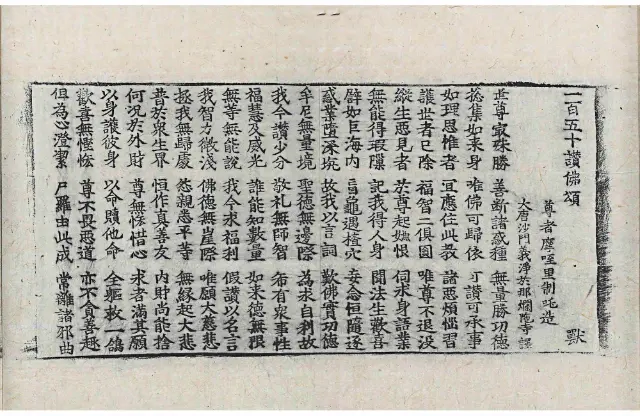 一百五十讚佛頌
尊者摩咥里制吒造 獸
大唐沙門義淨於那爛陀寺譯
世尊㝡殊勝 善斷諸惑種 無量勝功德
惣集如來身 唯佛可歸依 可讚可承事
如理思惟者 冝應住此教 諸惡煩惱習
護世者已除 福智二俱圓 唯尊不退没
縱生惡見者 於尊起嫌恨 伺求身語業
無能得瑕隟 記我得人身 聞法生歡喜
譬如巨海内 盲龜遇楂穴 妄念恒隨逐
惑業墮深坑 故我以言詞 歎佛實功德
牟尼無量境 聖德無邊際 為求自利故
我今讚少分 敬礼無師智 希有衆事性
福慧及威光 誰能知數量 如來德無限
無等無能說 我今求福利 假讚以名言
我智力微淺 佛德無崖際 唯願大慈悲
拯我無歸處 怨親悉平等 無緣起大悲
普於衆生界 恒作真善友 内財尚能捨
何況於外財 尊無悋惜心 求者滿其願
以身護彼身 以命贖他命 全軀救一鴿
歡喜無慳悋 尊不畏惡道 亦不貪善趣
但為心澄潔 尸羅由此成 常離諸邪曲